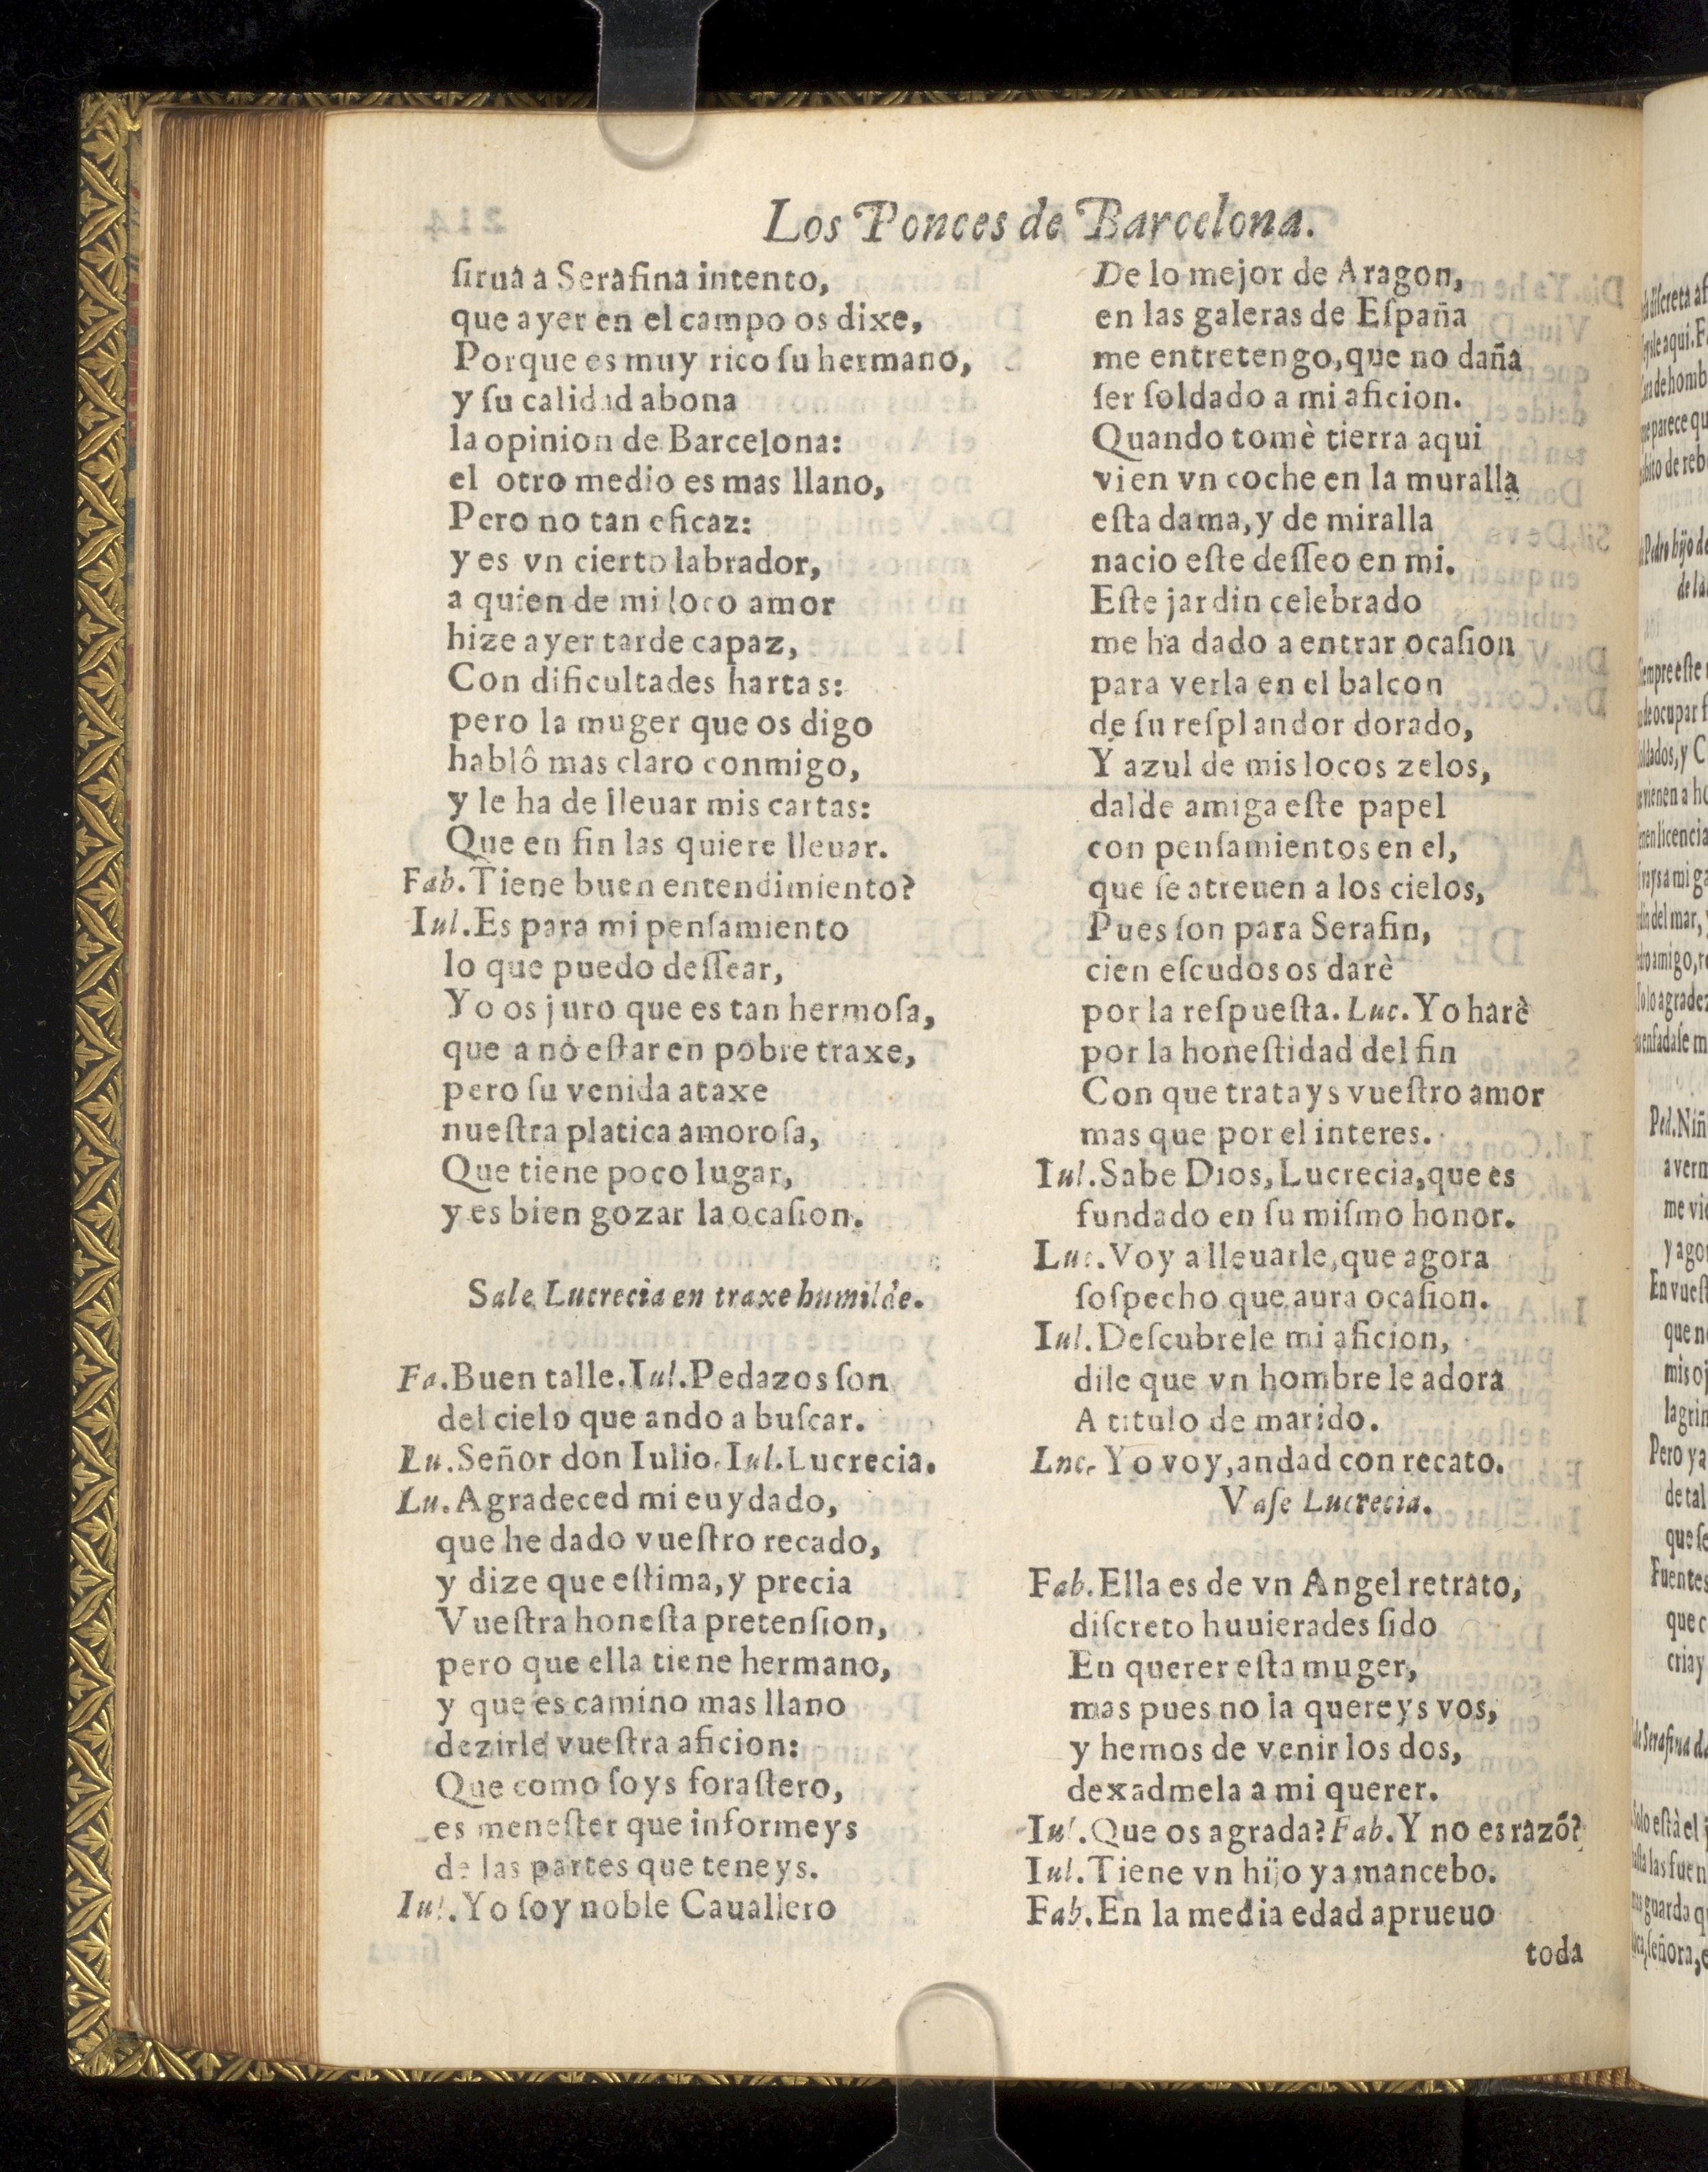 Los Ponces de Barcelona.
ſirua a Serafina intento,
que ayer en el campo os dixe,
Porque es muy rico ſu hermano,
y ſu calidad abona
la opinion de Barcelona:
el otro medio es mas llano,
Pero no tan eficaz:
y es vn cierto labrador,
a quien de mi loco amor
hize ayer tarde capaz,
Con dificultades hartas:
pero la muger que os digo
hablô mas claro conmigo,
y le ha de lleuar mis cartas:
Que en fin las quiere lleuar.
Fab. Tiene buen entendimiento?
Iul. Es para mi penſamiento
lo que puedo deſſear,
Yo os juro que es tan hermoſa,
que a no eſtar en pobre traxe,
pero ſu venida ataxe
nueſtra platica amoroſa,
Que tiene poco lugar,
y es bien gozar la ocaſion.
Sale Lucrecia en traxe humilde.
Fa. Buen talle. Iul. Pedazos ſon
del cielo que ando a buſcar.
Lu. Señor don Iulio. Iul. Lucrecia.
Lu. Agradeced mi euydado,
que he dado vueſtro recado,
y dize que eſtima, y precia
Vueſtra honeſta pretenſion,
pero que ella tiene hermano,
y que es camino mas llano
dezirle vueſtra aficion:
Que como ſoys foraſtero,
es meneſter que informeys
de las partes que teneys.
Iul. Yo ſoy noble Cauallero
De lo mejor de Aragon,
en las galeras de Eſpaña
me entretengo, que no daña
ſer ſoldado a mi aficion.
Quando tomè tierra aqui
vi en vn coche en la muralla
eſta dama, y de miralla
nacio eſte deſſeo en mi.
Eſte jardin celebrado
me ha dado a entrar ocaſion
para verla en el balcon
de ſu reſplandor dorado,
Y azul de mis locos zelos,
dalde amiga eſte papel
con penſamientos en el,
que ſe atreuen a los cielos,
Pues ſon para Serafin,
cien eſcudos os darè
por la reſpueſta. Luc. Yo harè
por la honeſtidad del fin
Con que tratays vueſtro amor
mas que por el interes.
Iul. Sabe Dios, Lucrecia, que es
fundado en ſu miſmo honor.
Luc. Voy a lleuarle, que agora
ſoſpecho que aura ocaſion.
Iul. Deſcubrele mi aficion,
dile que vn hombre le adora
A titulo de marido.
Lnc. Yo voy, andad con recato.
Vaſe Lucrecia.
Fab. Ella es de vn Angel retrato,
diſcreto huuierades ſido
En querer eſta muger,
mas pues no la quereys vos,
y hemos de venir los dos,
dexadmela a mi querer.
Iul. Que os agrada? Fab. Y no es razõ?
Iul. Tiene vn hijo ya mancebo.
Fab. En la media edad aprueuo
toda